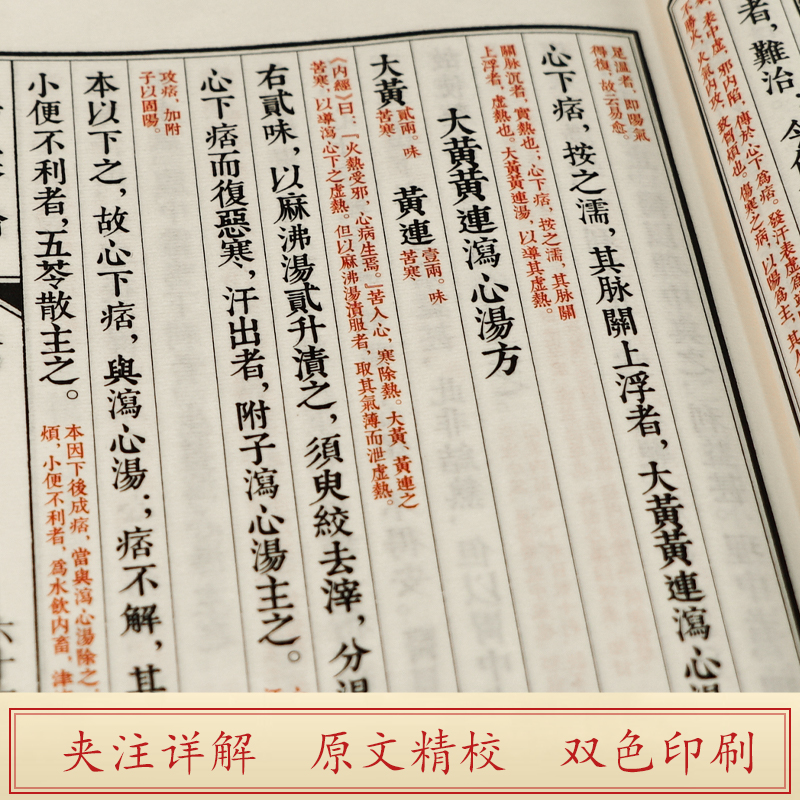 者，難治
表中虛，邪內陷，傳於心下為痞。發汗表虛為
火氣內攻，致胷煩也。傷寒之病，以陽為主，其
是溫者，即陽氣
得復，故云易愈。
心下痞，按之濡，其脉關上浮者，大黃黃連瀉心湯
關脉沉者，實熱也；心下痞，按之濡，其脉關
上浮者，虛熱也。大黃黃連湯，以導其虛熱。
大黃黃連瀉心湯方
大黃 貳兩。味苦寒 黃連 壹兩。味苦寒
《內經》曰：「火熱受邪，心病生焉。」苦入心，寒除熱。大黃、黃連之
苦寒，以導瀉心下之虛熱。但以麻沸湯漬服者，取其氣薄而泄虛熱。
右貳味，以麻沸湯貳升漬之，須臾絞去滓，分溫
心下痞而復惡寒、汗出者，附子瀉心湯主之。
攻痞，加附
子以固陽。
本以下之，故心下痞，與瀉心湯；痞不解，其
小便不利者，五苓散主之。
本因下後成痞，當與瀉心湯除之
煩，小便不利者，為水飲內畜，津
夹注详解 原文精校 双色印刷